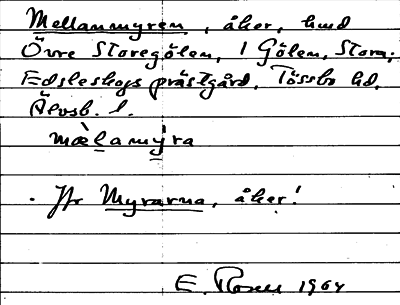 Mellanmyren, åker, hmd
Övre Storegölen, 1 Gölen, Stora;
Edsleskogs prästgård, Tössbo hd,
Älvsb. l.
mæ̀lamyra
. Jfr Myrarna, åker!
E. Rosen 1964